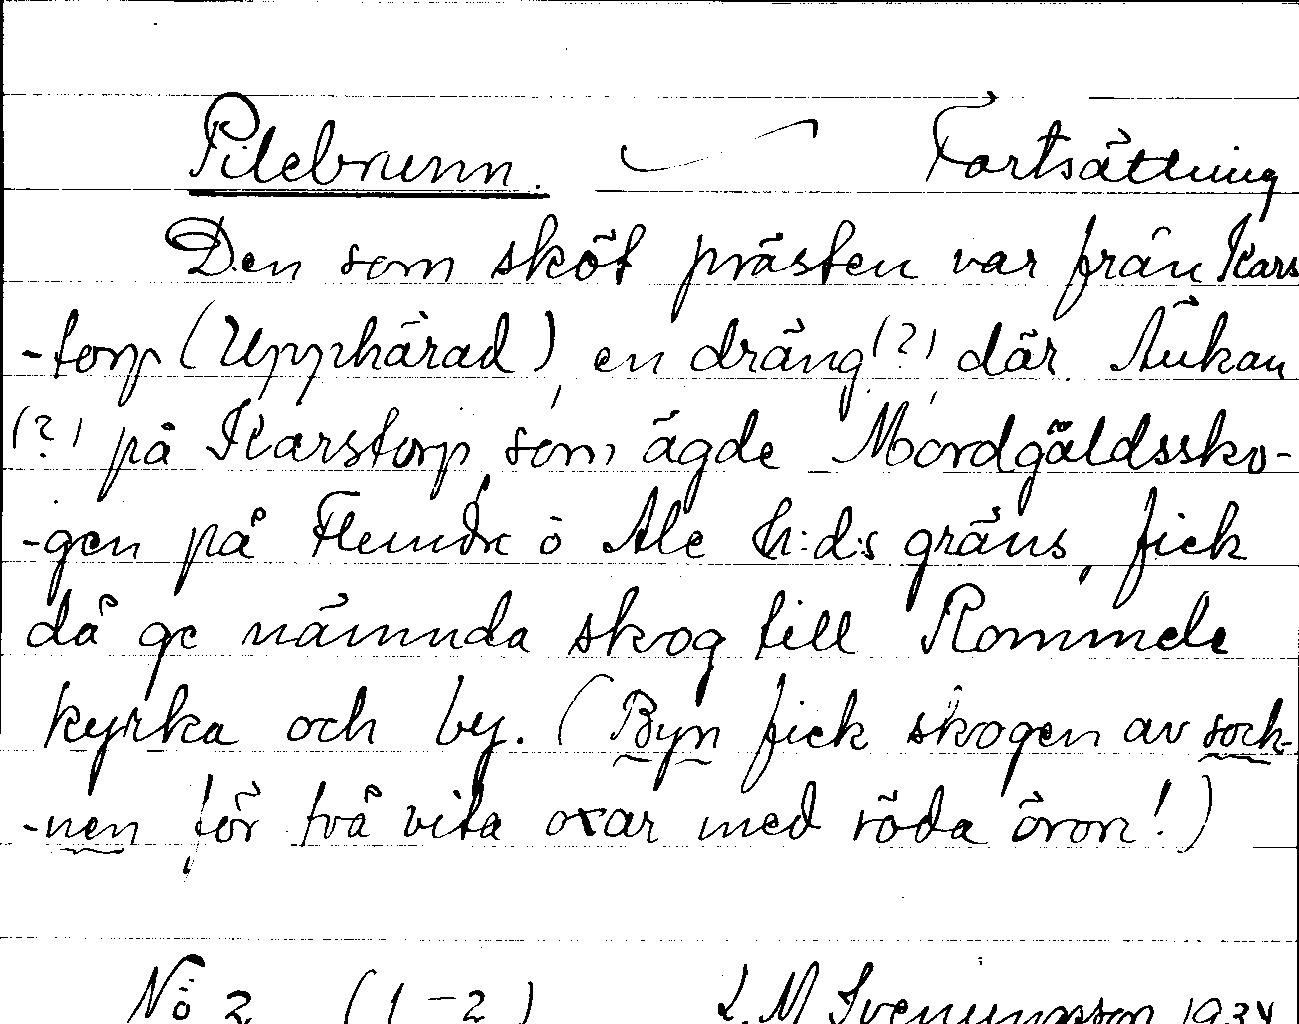 Pilebrunn. Fortsättning
Den som sköt prästen var från Kars
-torp (Upphärad), en dräng (?) där. Änkan
(?) på Karstorp, som ägde Mordgäldssko-
-gen på Flundre o Ale h:d:s gräns, fick
då ge nämnda skog till Rommele
kyrka och by. (Byn fick skogen av sock-
-nen för två vita oxar med röda öron!)
No 2 (1-2) L. M Svenungsson 1934